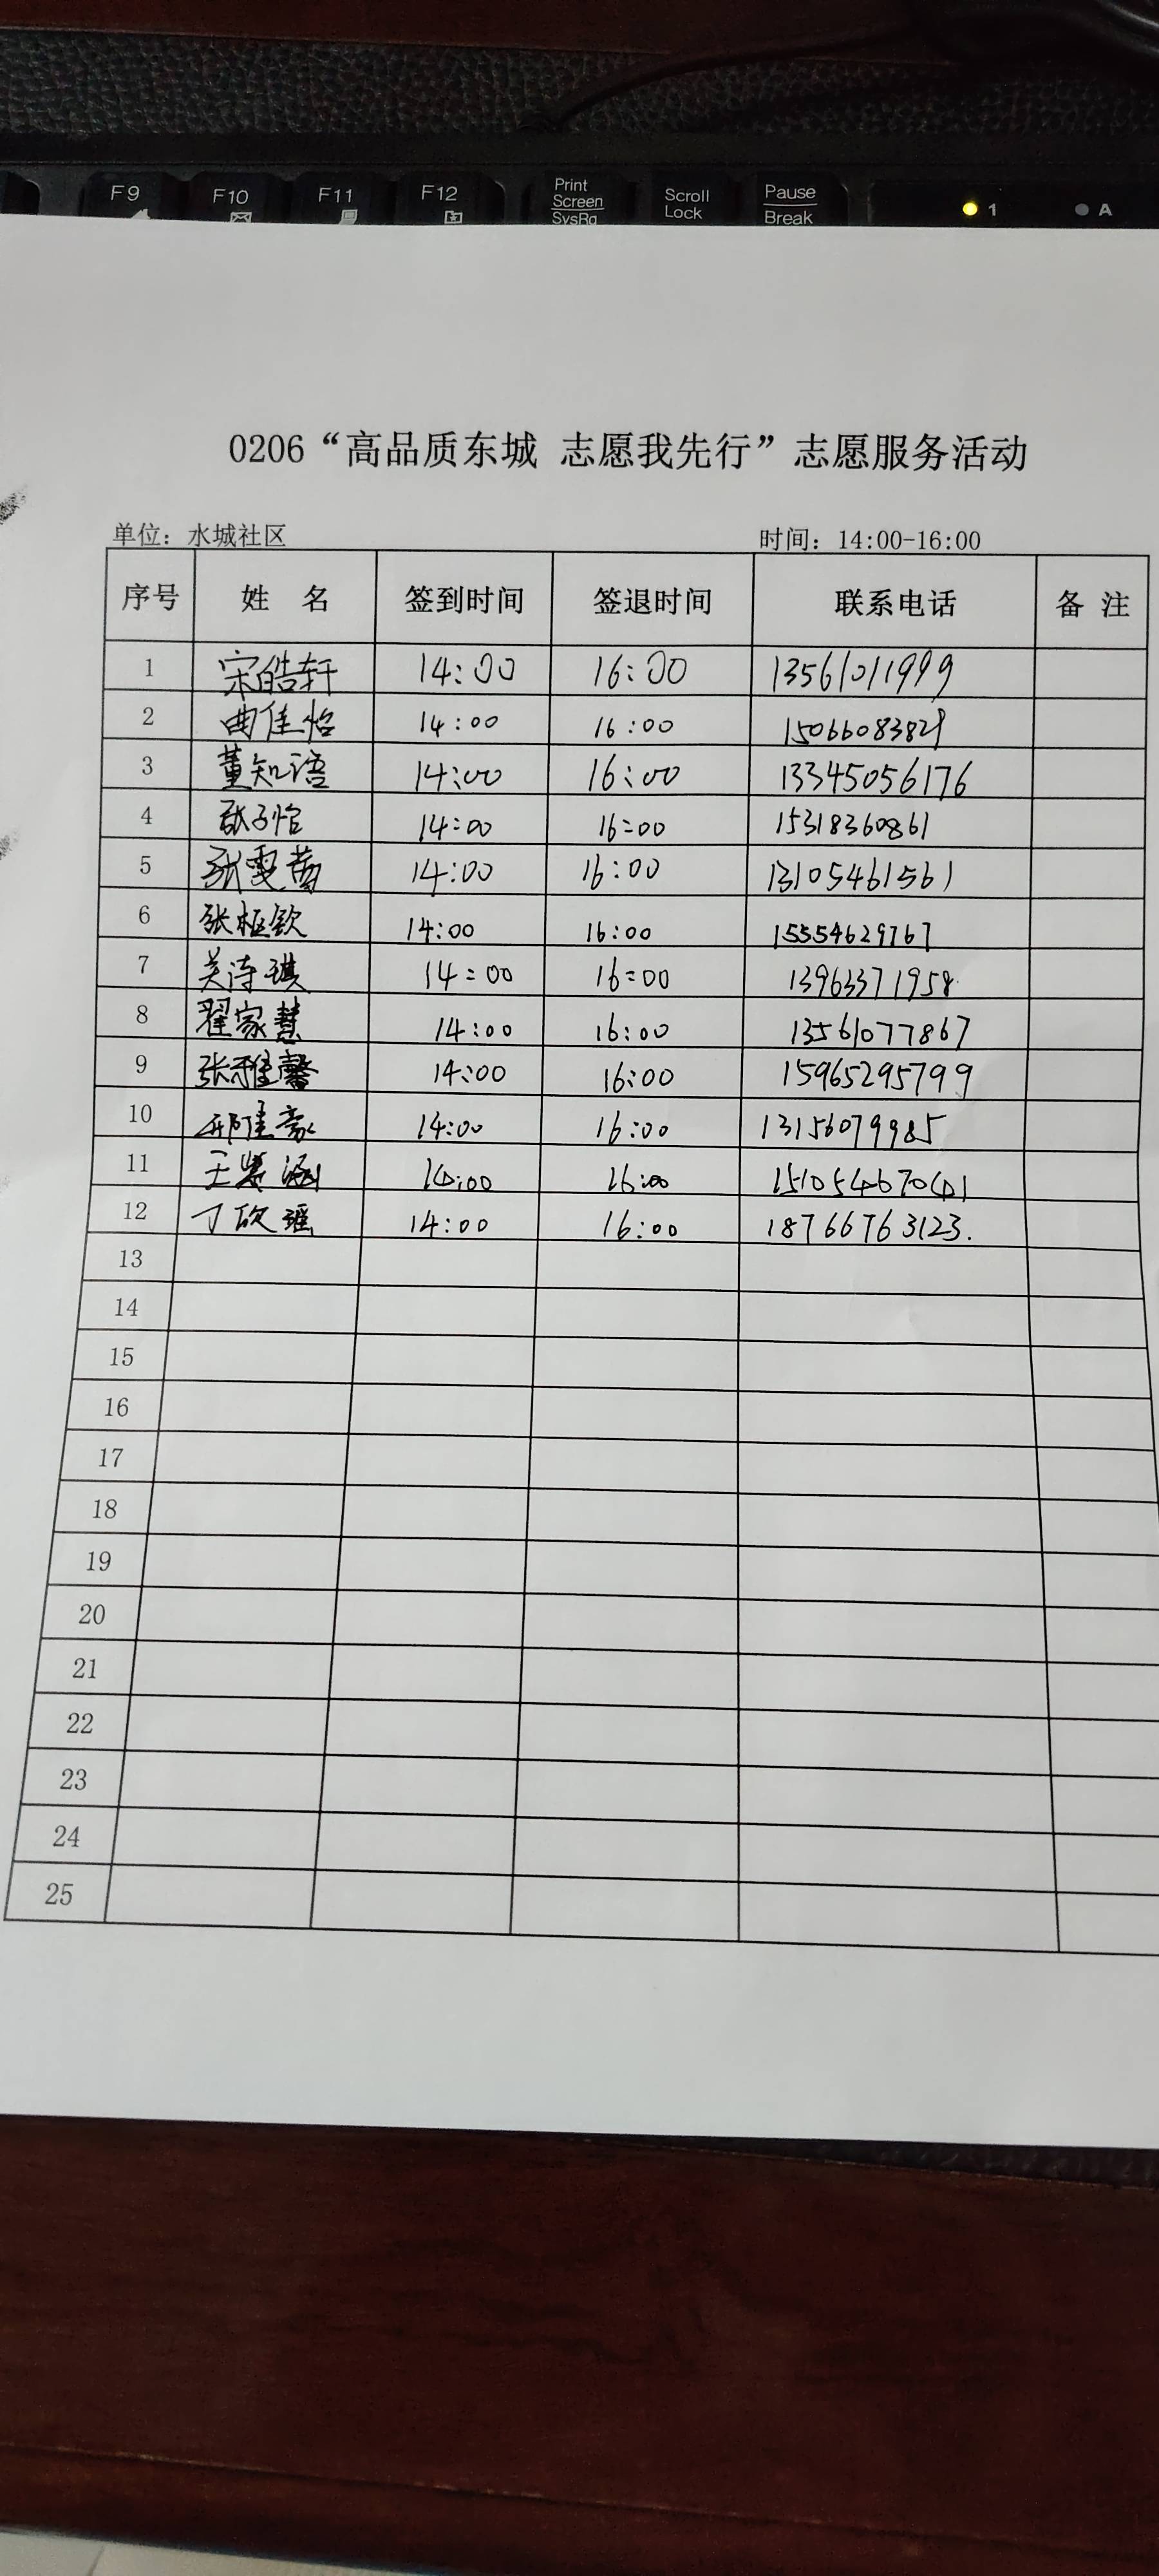 F9 F10 F11 F12 Print Screen SysRq Scroll Lock Pause Break 1 A
0206“高品质东城 志愿我先行”志愿服务活动
单位：水城社区 时间：14:00-16:00
序号 姓 名 签到时间 签退时间 联系电话 备 注
1 宋皓轩 14:00 16:00 13561011999
2 曲佳怡 14:00 16:00 15066083829
3 董知语 14:00 16:00 13345056176
4 张子怡 14:00 16:00 15318360861
5 张雯茜 14:00 16:00 13105461561
6 张桓钦 14:00 16:00 15554629767
7 关诗琪 14:00 16:00 13963371958
8 翟家慧 14:00 16:00 13561077867
9 张雅馨 14:00 16:00 15965295799
10 邢佳豪 14:00 16:00 13156079985
11 14:00 16:00 15105467041
12 丁欣瑶 14:00 16:00 18766763123.
13
14
15
16
17
18
19
20
21
22
23
24
25